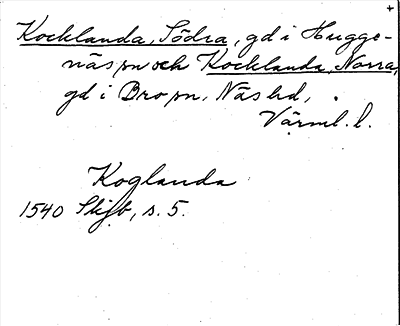 +
Kocklanda, Södra, gd i Hugge-
näs pn och Kocklanda, Norra,
gd i Bro pn, Näs hd,
Värml. l.
Koglanda
1540 Skjb, s. 5.